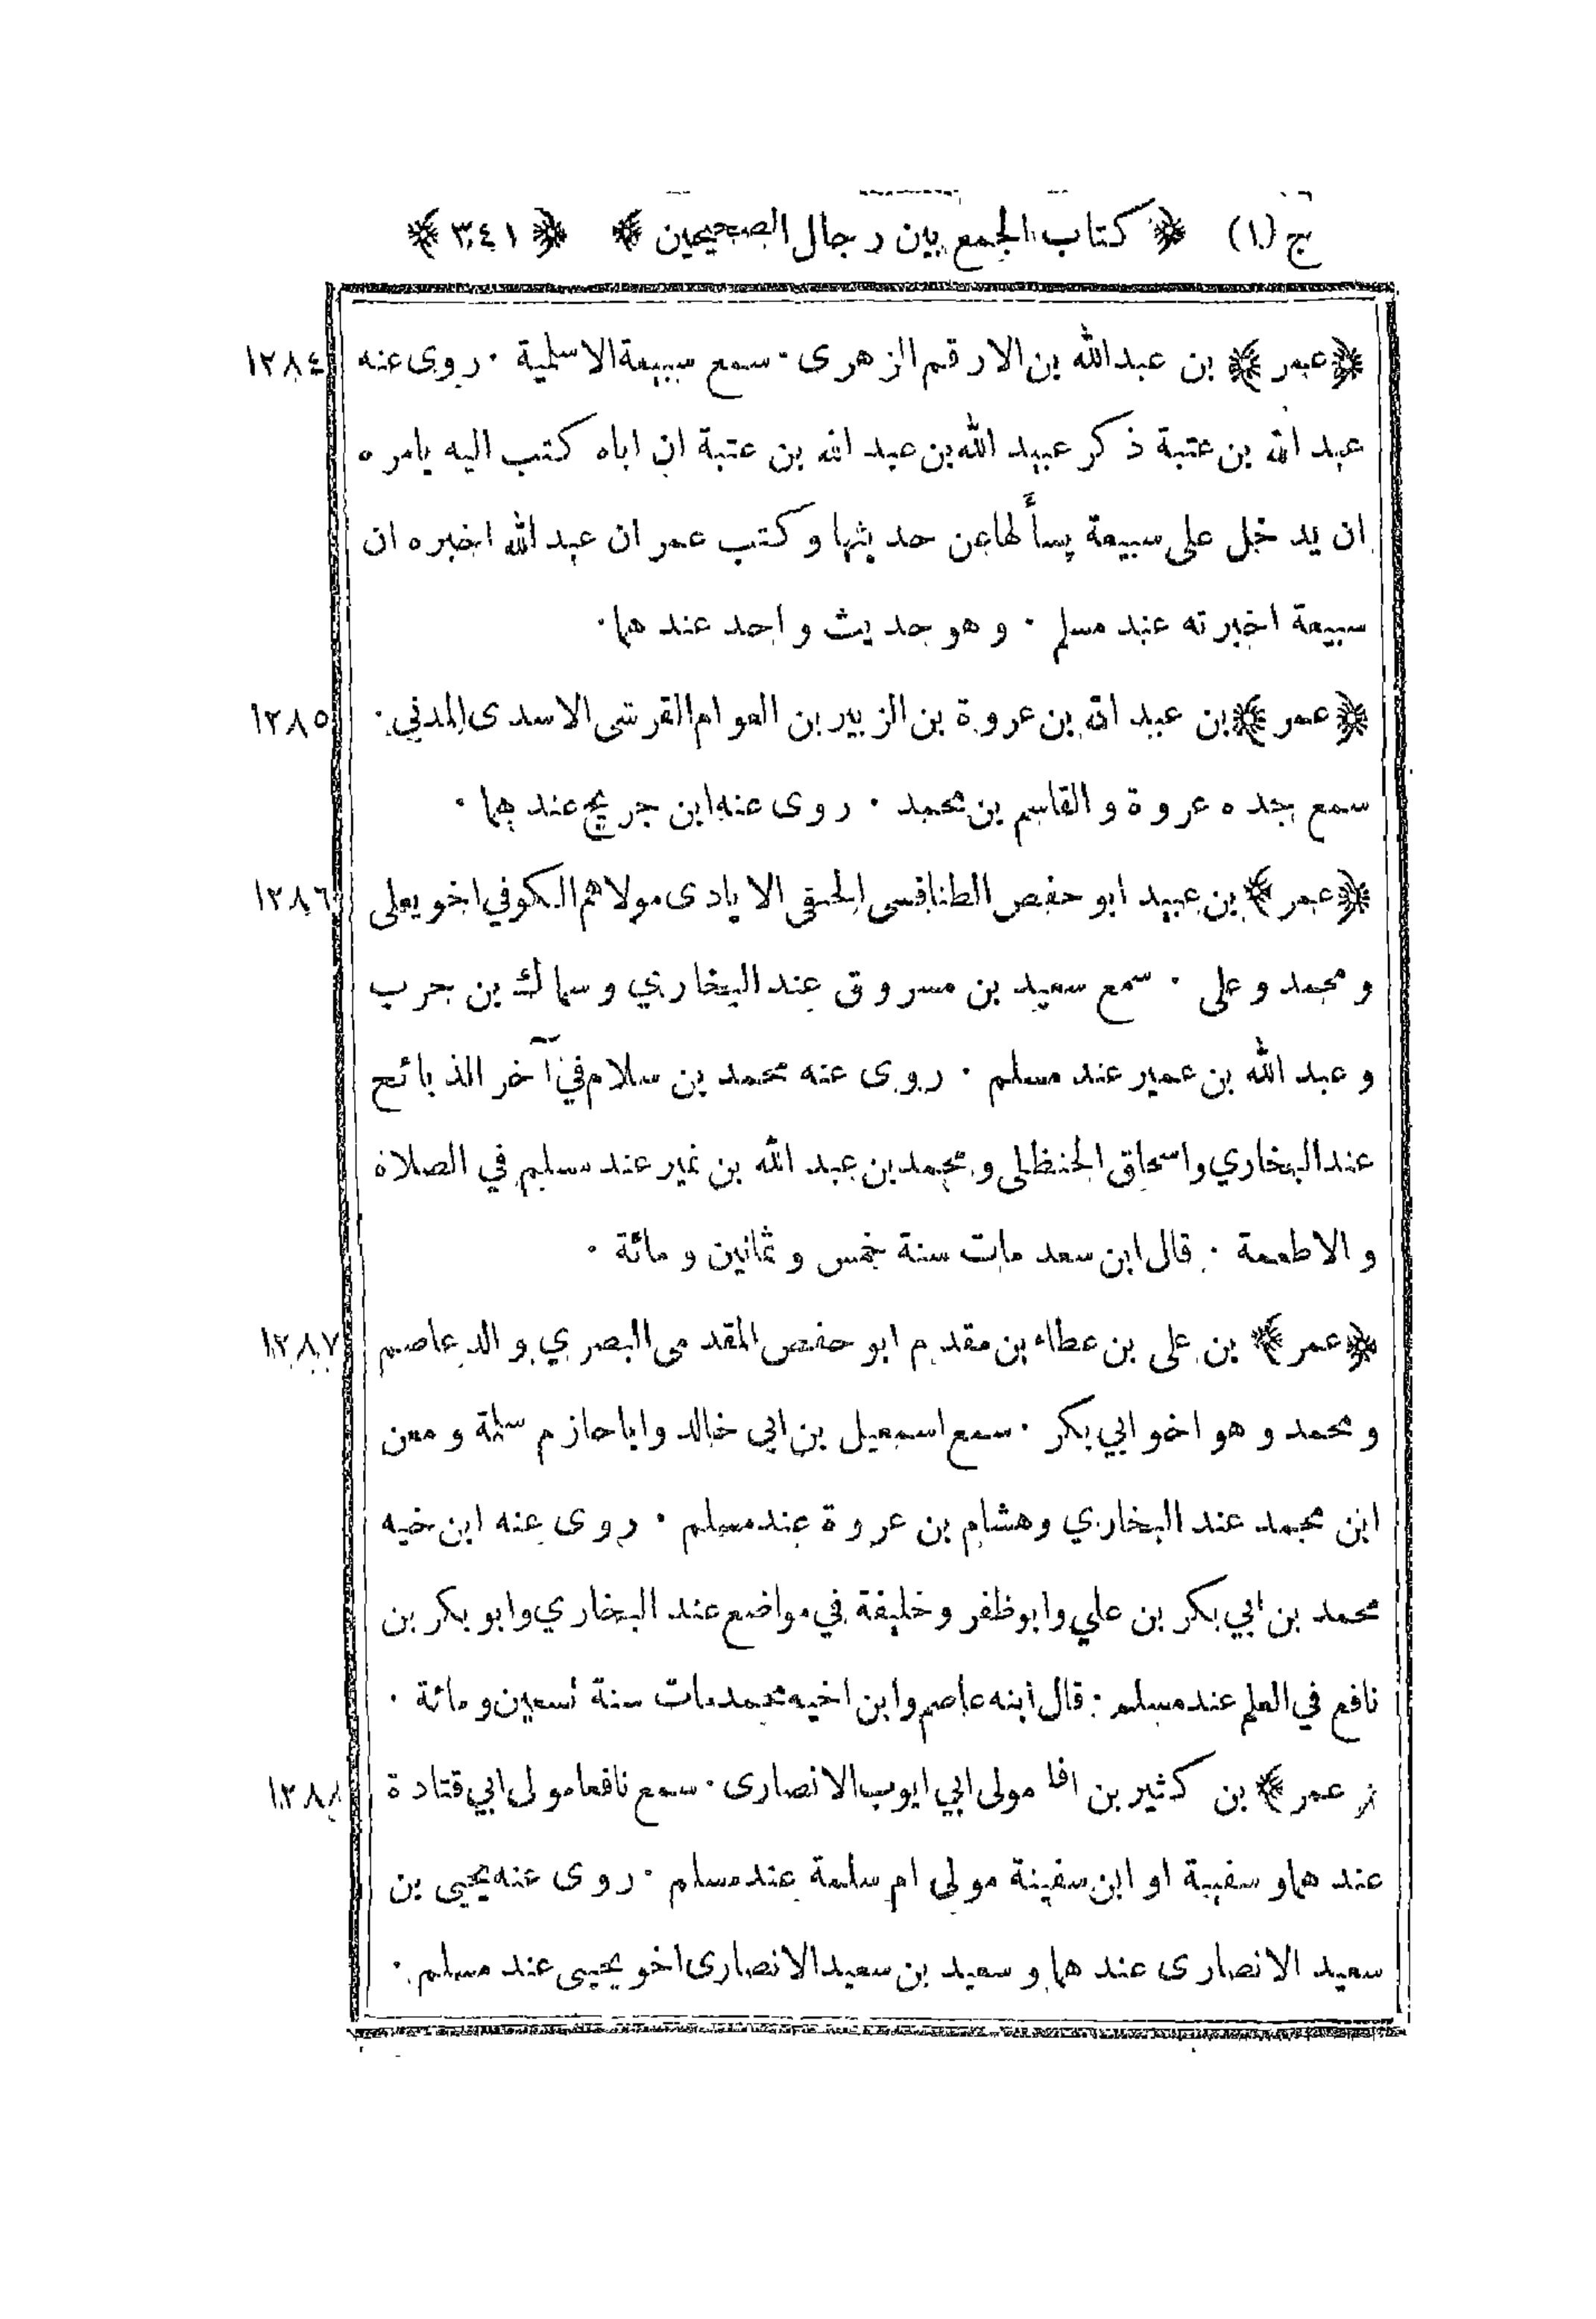 ج (١) ﴿ كتاب الجمع بين رجال الصحيحين ﴾ ﴿ ٣٤١ ﴾
﴿ عمر ﴾ بن عبدالله بن الارقم الزهرى ٠ سمع سبيعة الاسلمية ٠ روى عنه ١٢٨٤
عبد الله بن عتبة ذكر عبيد الله بن عبد الله بن عتبة ان اباه كتب اليه يامره
ان يدخل على سبيعة يسألها عن حديثها وكتب عمر ان عبد الله اخبره ان
سبيعة اخبرته عند مسلم ٠ وهو حديث واحد عندهما ٠
﴿ عمر ﴾ بن عبد الله بن عروة بن الزبير بن العوام القرشى الاسدى المدني ٠ ١٢٨٥
سمع جده عروة والقاسم بن محمد ٠ روى عنه ابن جريج عندهما ٠
﴿ عمر ﴾ بن عبيد ابو حفص الطنافسى الحنفى الايادى مولاهم الكوفي اخو يعلى ١٢٨٦
ومحمد وعلى ٠ سمع سعيد بن مسروق عند البخاري وسماك بن حرب
وعبد الله بن عمير عند مسلم ٠ روى عنه محمد بن سلام في آخر الذبائح
عند البخاري واسحاق الحنظلى ومحمد بن عبد الله بن نمير عند مسلم في الصلاة
والاطعمة ٠ قال ابن سعد مات سنة خمس وثمانين ومائة ٠
﴿ عمر ﴾ بن على بن عطاء بن مقدم ابو حفص المقدمى البصري والد عاصم ١٢٨٧
ومحمد وهو اخو ابي بكر ٠ سمع اسمعيل بن ابى خالد وابا حازم سلمة ومعن
ابن محمد عند البخاري وهشام بن عروة عند مسلم ٠ روى عنه ابن خيه
محمد بن ابي بكر بن علي وابو ظفر وخليفة في مواضع عند البخاري وابو بكر بن
نافع في العلم عند مسلم ٠ قال ابنه عاصم وابن اخيه محمد مات سنة تسعين ومائة ٠
عمر ﴾ بن كثير بن افلح مولى ابي ايوب الانصارى ٠ سمع نافعا مولى ابي قتادة ١٢٨٨
عندهما وسفينة او ابن سفينة مولى ام سلمة عند مسلم ٠ روى عنه يحيى بن
سعيد الانصارى عندهما وسعيد بن سعيد الانصارى اخو يحيى عند مسلم ٠